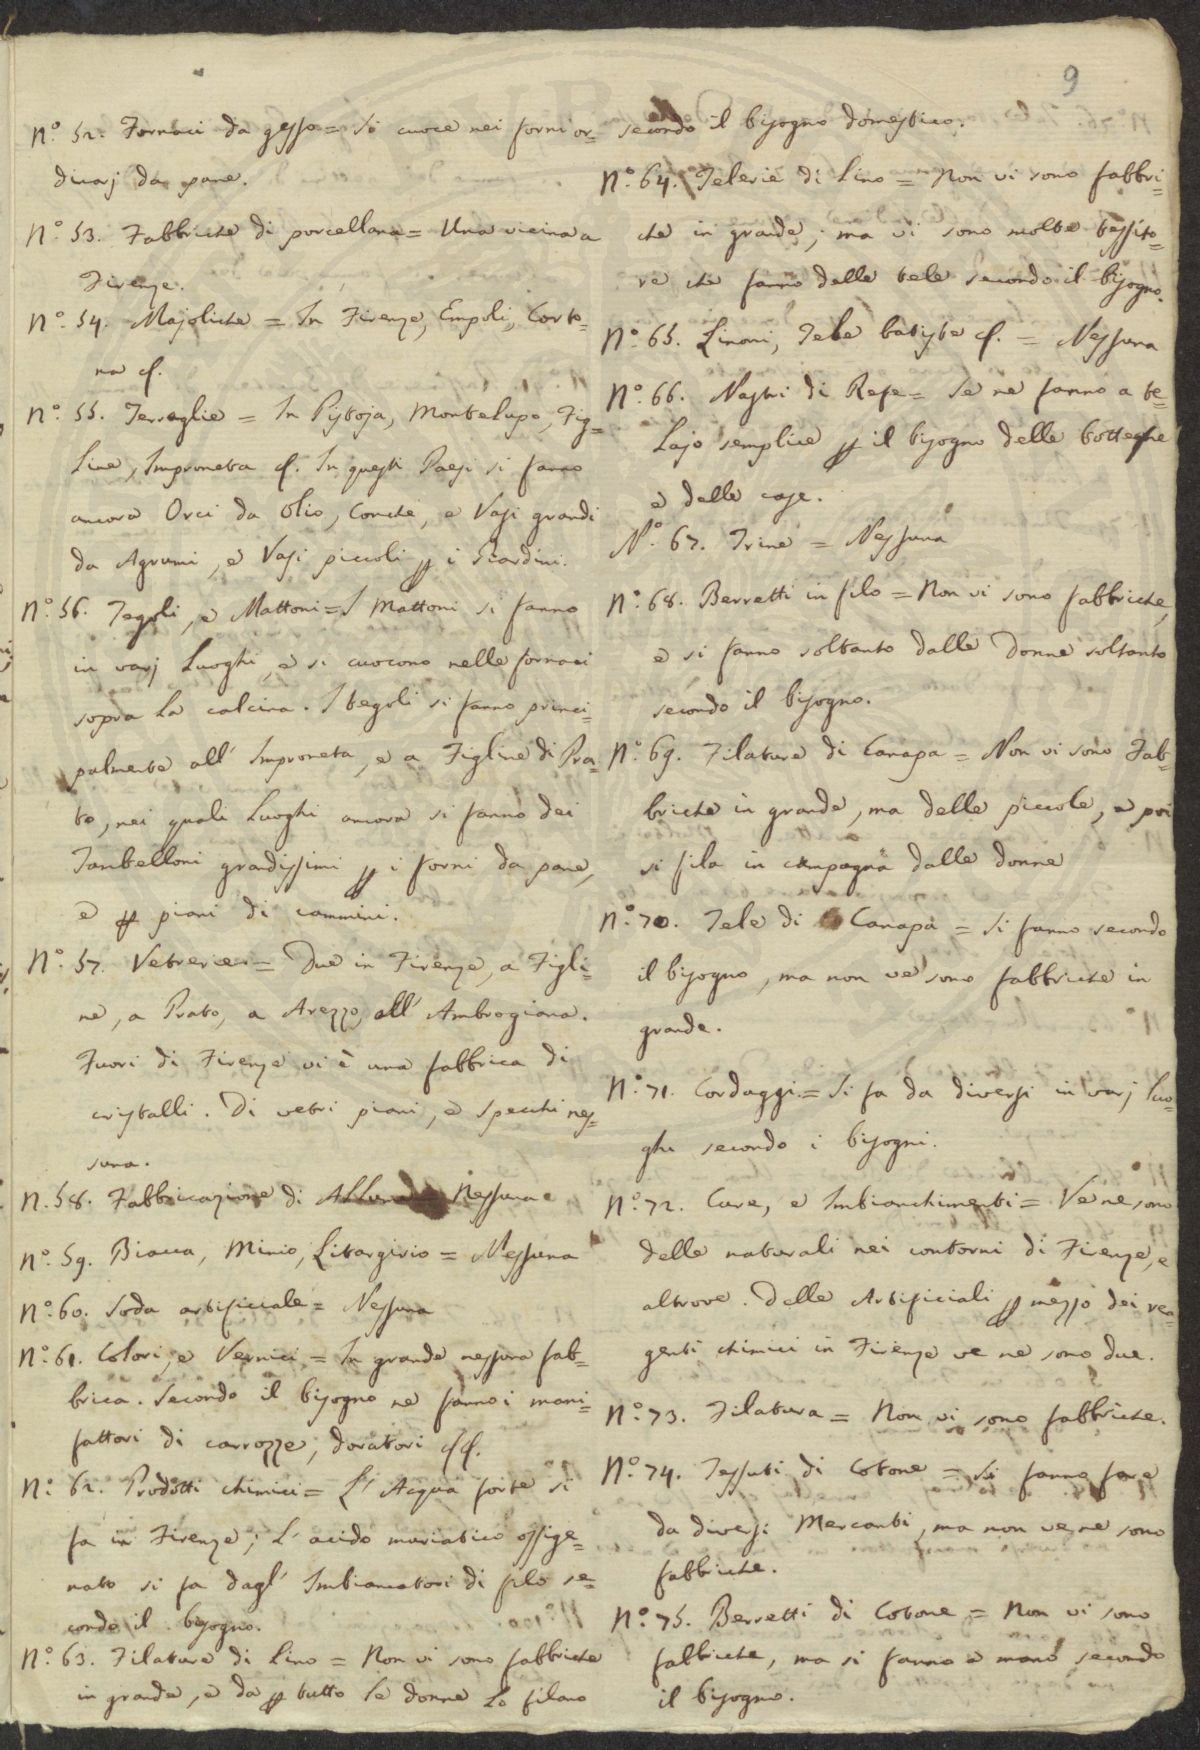 9
N.° 52. Fornaci da gesso = Si cuoce nei forni or=
dinarj da pane.
N.° 53. Fabbriche di porcellana = Una vicina a
Firenze.
N.° 54. Majoliche = In Firenze, Empoli, Corto=
na
N.° 55. Terraglie = In Pistoja, Montelupo, Fig=
Line, Impruneta In questi Paesi si fanno
ancora Orci da olio, Conche, e Vasi grandi
da Agrumi, e Vasi piccoli p i Giardini.
N.° 56. Tegoli, e Mattoni = I Mattoni si fanno
in varj Luoghi, e si cuocono nelle fornaci
sopra la calcina. I tegoli si fanno princi=
palmente all' Impruneta, e a Figline di Pra=
to, nei quali Luoghi ancora si fanno dei
Tambelloni grandissimi p i forni da pane,
e p piani di cammini.
N.° 57. Vetrerie = Due in Firenze, a Figli=
ne, a Prato, a Arezzo, all' Ambrogiana.
Fuori di Firenze vi è una fabbrica di
cristalli. Di vetri piani, e specchi nes=
suna.
N. 58. Fabbricazione di Allume Nessuna
N.° 59. Biacca, Minio, Litargirio = Nessuna
N.° 60. Soda artificiale = Nessuna
N.° 61. Colori, e Vernici = In grande nessuna fab=
brica. Secondo il bisogno ne fanno i mani=
fattori di carrozze, doratori
N.° 62. Prodotti chimici = L' Acqua forte si
fa in Firenze; L' acido muriatico ossige=
nato si fa dagl' Imbiancatori di filo se=
condo il bisogno.
N.° 63. Filature di Lino = Non vi sono fabbriche
in grande, e da p tutto le donne Lo filano
secondo il bisogno domestico.
N.° 64. Telerie di Lino = Non vi sono fabbri=
che in grande; ma vi sono molte tessito=
re che fanno delle tele secondo il bisogno.
N.° 65. Linoni, Tele batiste = Nessuna
N.° 66. Nastri di Refe = Se ne fanno a te=
Lajo semplice p il bisogno delle botteghe
e delle case.
N.° 67. Trine = Nessuna
N.° 68. Berretti in filo = Non vi sono fabbriche,
e si fanno soltanto dalle Donne soltanto
secondo il bisogno.
N.° 69. Filature di Canapa = Non vi sono Fab=
briche in grande, ma delle piccole, e poi
si fila in campagna dalle donne
N.° 70. Tele di Canapa = Si fanno secondo
il bisogno, ma non ve sono fabbriche in
grande.
N.° 71. Cordaggi = Si fa da diversi in varj Luo=
ghi secondo i bisogni.
N.° 72. Cure, e Imbianchimenti = Ve ne sono
delle naturali nei contorni di Firenze, e
altrove. Delle Artificiali p mezzo dei rea=
genti chimici in Firenze ve ne sono due.
N.° 73. Filatura = Non vi sono fabbriche.
N.° 74. Tessuti di Cotone = Si fanno fare
da diversi Mercanti, ma non ve ne sono
fabbriche.
N.° 75. Berretti di Cotone = Non vi sono
fabbriche, ma si fanno a mano secondo
il bisogno.